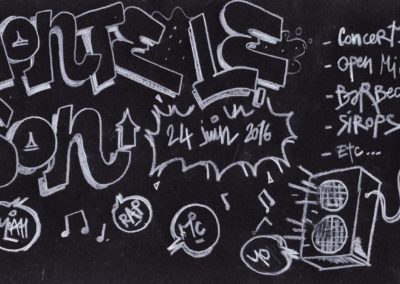 MONTE LE
SON
24 juin 2016
- Concert
- Open Mi
- Barbec
- Sirops
- Etc...
RAP
MC
YO